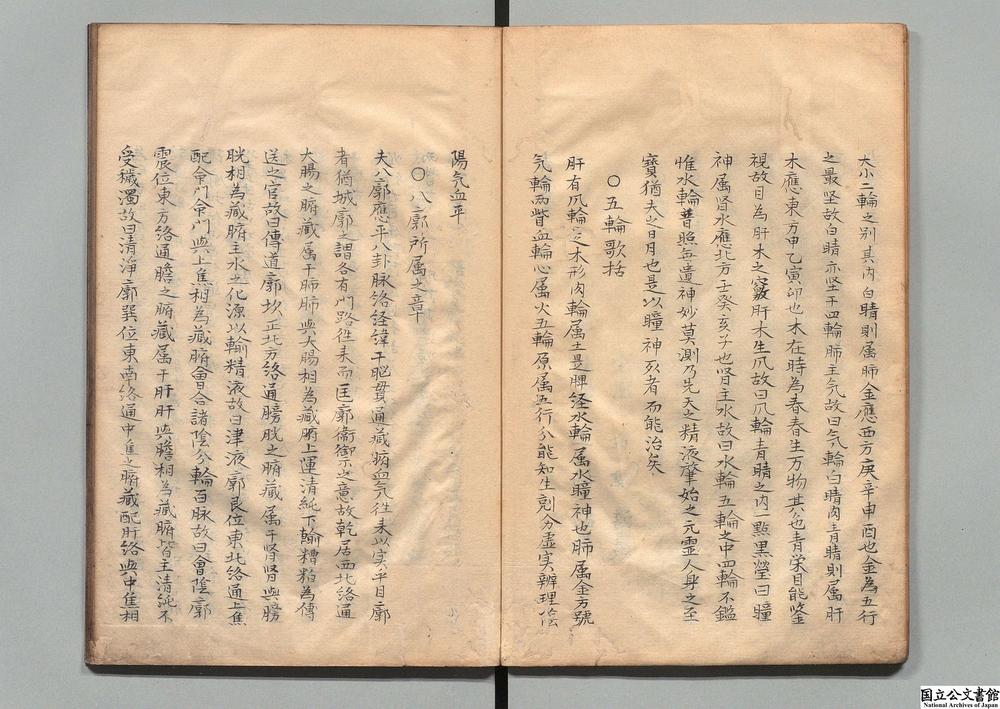 大小二輪之別其内白睛則属肺金應西方庚辛申酉也金為五行
之最坚故白睛亦坚于四輪肺主气故曰气輪白睛内青睛則属肝
木應東方甲乙寅卯也木在時為春春生万物其色青栄目能鉴
視故目為肝木之竅肝木生爪故曰爪輪青睛之内一點黒瑩曰瞳
神属肾水應北方壬癸亥子也肾主水故曰水輪五輪之中四輪不鑑
惟水輪普照無遺神妙莫測乃先天之精液肇始之元霊人身之至
寳猶天之日月也是以瞳神死者而能治矣
○五輪歌括
肝有爪輪是木形肉輪属土是脾経水輪属水瞳神也肺属金方號
気輪兩眥血輪心属火五輪原属五行分能知生尅分虚实辨理陰
陽気血平
○八廓所属之章
夫八廓應乎八卦脉络経緯于脳貫通藏腑血気徃来以实乎目廓
者猶城廓之謂各有門路徃来而匡廓衛御之意故乾居西北络通
大腸之腑藏属于肺肺與大腸相為藏腑上運清純下輸糟粕為傳
送之官故曰傳道廓坎正北方络通膀胱之腑藏属于肾肾與膀
胱相為藏腑主水之化源以輸精液故曰津液廓艮位東北络通上焦
配命門命門與上焦相為藏腑會合諸陰分輪百脉故曰會陰廓
震位東方络通膽之腑藏属于肝肝與膽相為藏腑皆主清純不
受穢濁故曰清淨廓巽位東南络通中焦之腑藏配肝络與中焦相
国立公文書館
National Archives of Japan